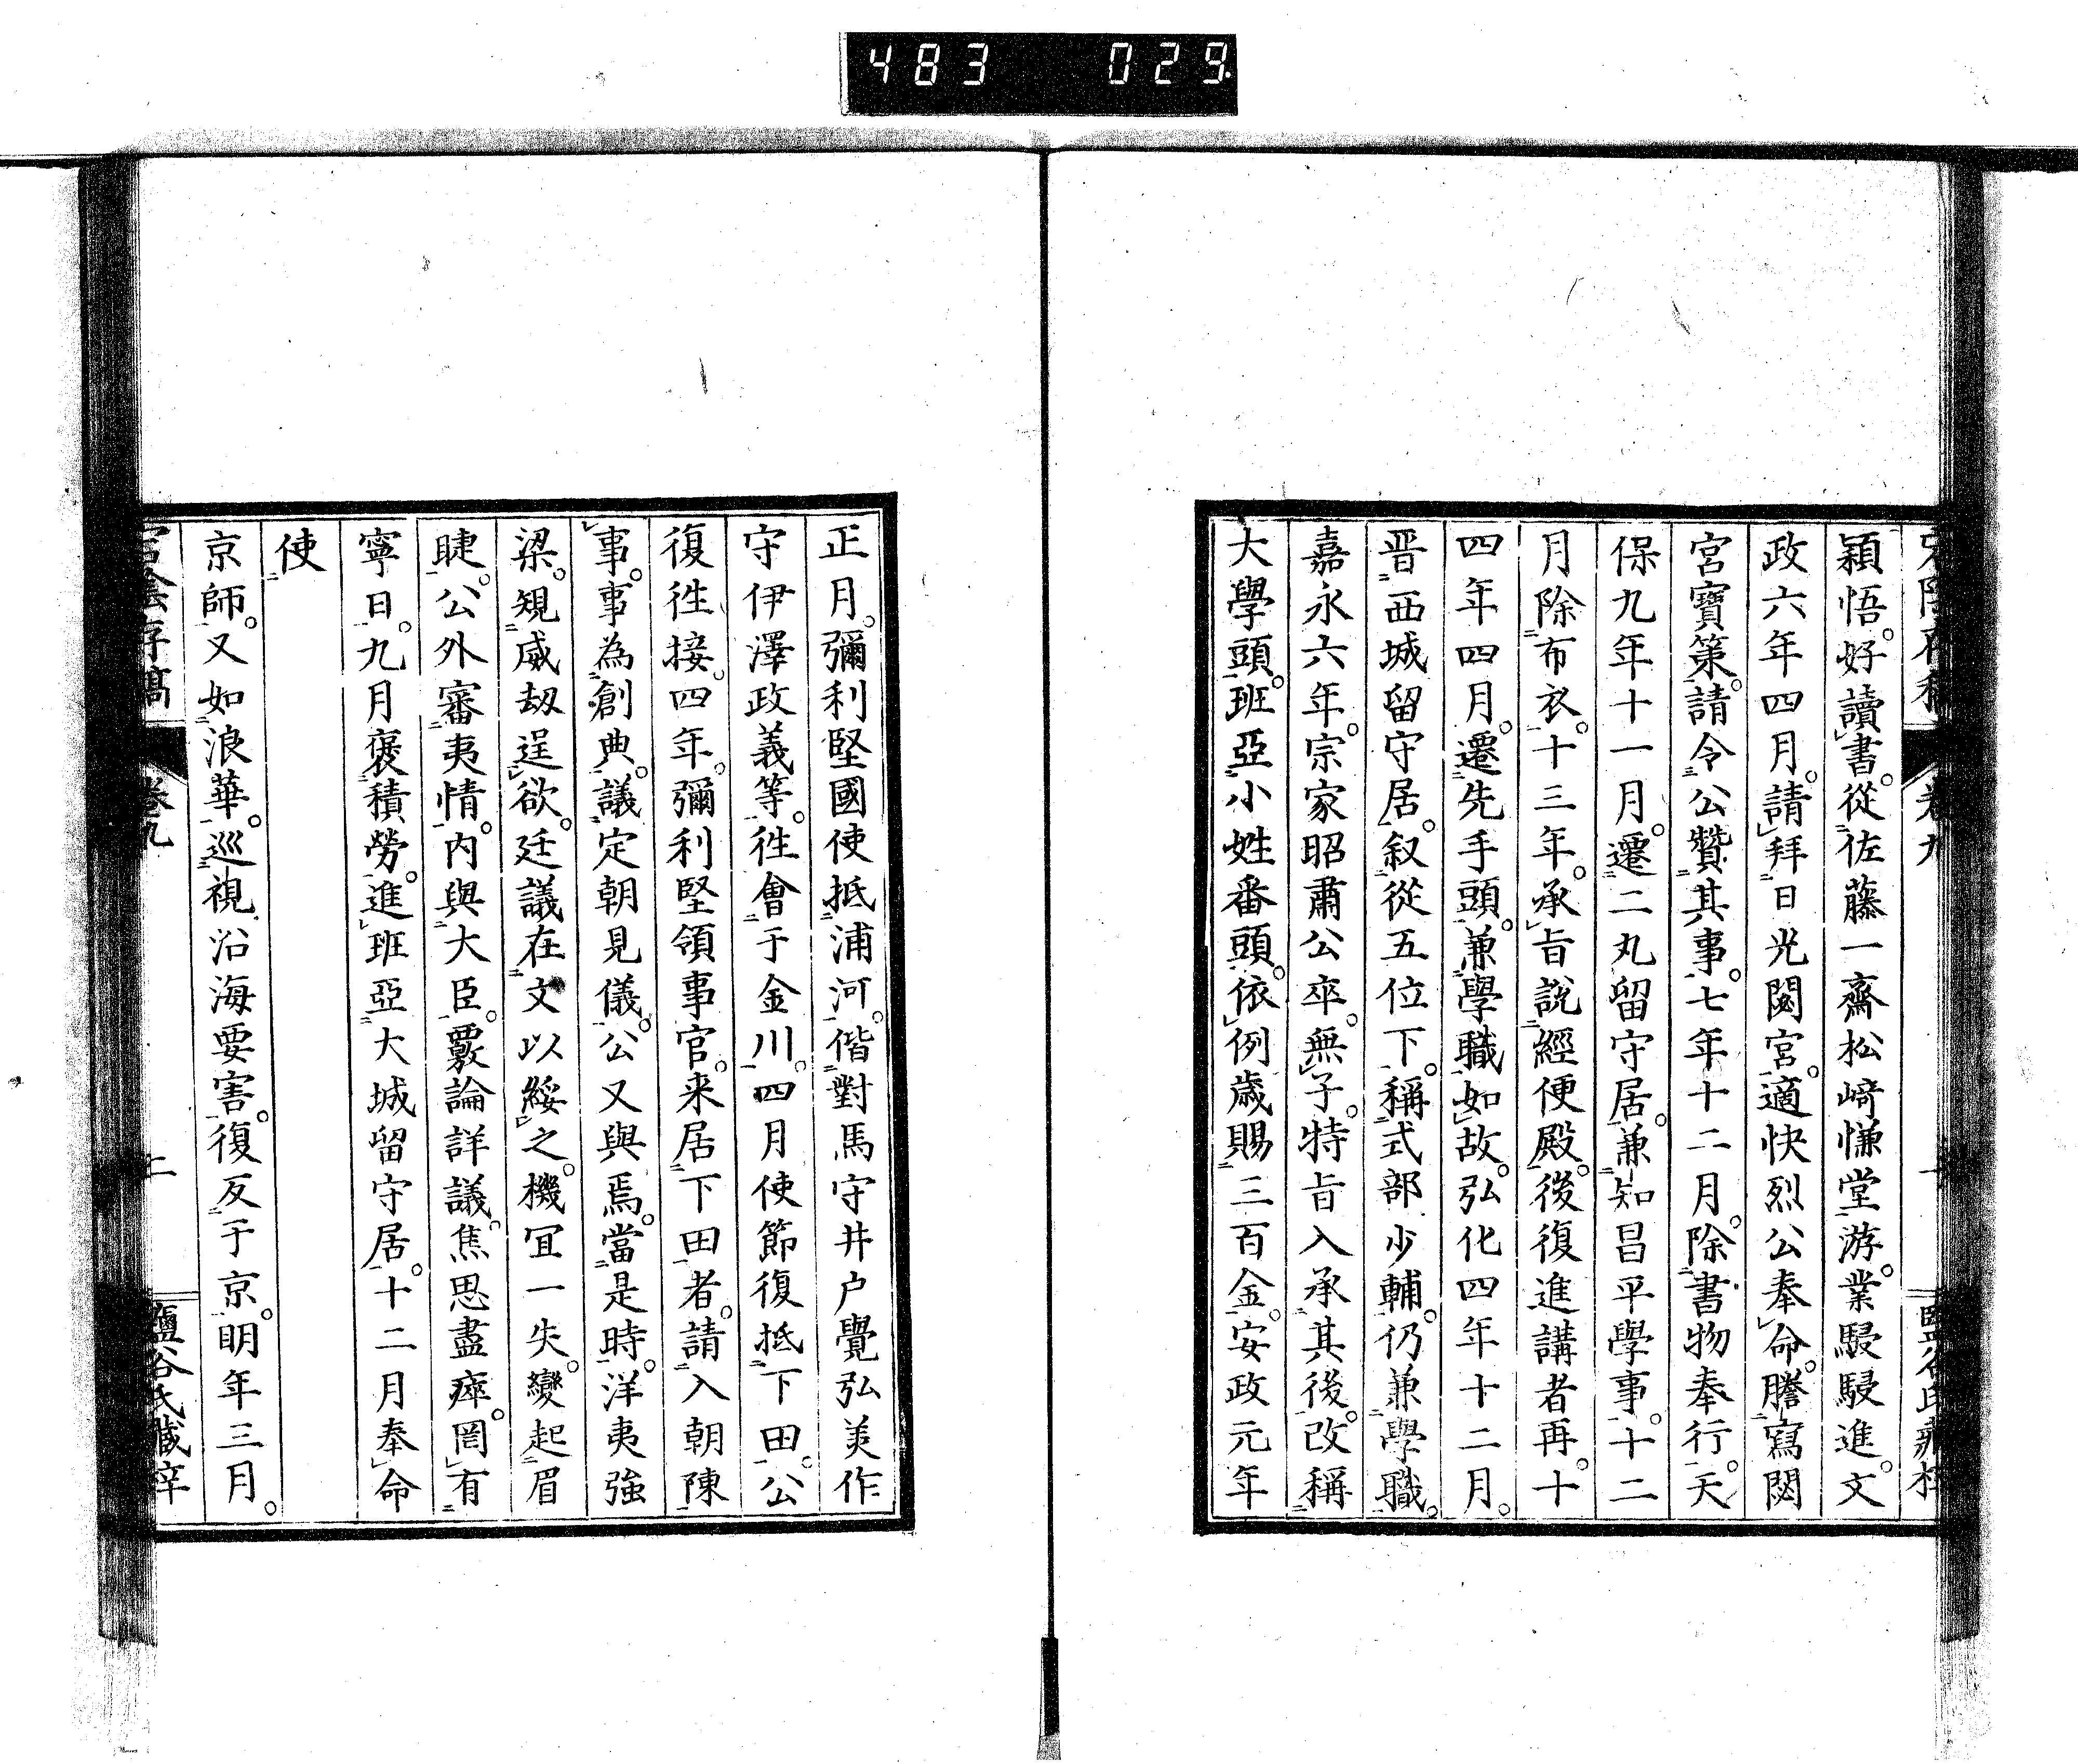 483 029
穎悟。好讀書。從佐藤一齋松﨑慊堂游。業駸駸進。文
政六年四月。請拜日光閟宮。適快烈公奉命。謄寫閟
宮寶策。請令公贊其事。七年十二月。除書物奉行。天
保九年十一月。遷二丸留守居。兼知昌平學事。十二
月除布衣。十三年。承旨說經便殿。後復進講者再。十
四年四月。遷先手頭。兼學職如故。弘化四年十二月。
晋西城留守居。叙從五位下。稱式部少輔。仍兼學職。
嘉永六年。宗家昭肅公卒。無子。特旨入承其後。改稱
大學頭。班亞小姓番頭。依例歲賜三百金。安政元年
正月。彌利堅國使抵浦河。偕對馬守井戶覺弘美作
守伊澤政義等。往會于金川。四月使節復抵下田。公
復往接。四年。彌利堅領事官。来居下田者。請入朝陳
事。事為創典。議定朝見儀。公又與焉。當是時。洋夷強
梁。覢威劫逞欲。廷議在文以綏之。機冝一失。變起眉
睫。公外審夷情。內與大臣。覈論詳議。焦思盡瘁。罔有
寧日。九月褒積勞。進班亞大城留守居。十二月奉命
使
京師。又如浪華。巡視沿海要害。復反于京。明年三月。
宕陰存稿 卷九 鹽谷氏藏梓